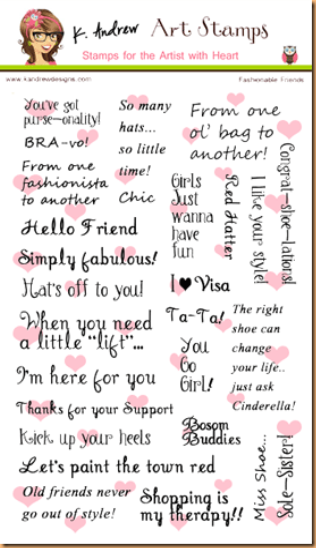 K. Andrew Art Stamps
Stamps for the Artist with Heart
www.kandrewdesigns.com
Fashionable Friends
You've got
purse-onality!
BRA-vo!
From one
fashionista
to another
So many
hats...
so little
time!
Chic
From one
ol' bag to
another!
Girls
Just
wanna
have
fun
Red Hatter
I like your style!
Congrat-shoe-lations!
Hello Friend
Simply fabulous!
Hat's off to you!
I ♥ Visa
When you need
a little "lift"...
Ta-Ta!
The right
shoe can
change
your life..
just ask
Cinderella!
You
Go
Girl!
I'm here for you
Thanks for your Support
Kick up your heels
Bosom
Buddies
Let's paint the town red
Old friends never
go out of style!
Shopping is
my therapy!!
Miss Shoe...
Sole-Sister!